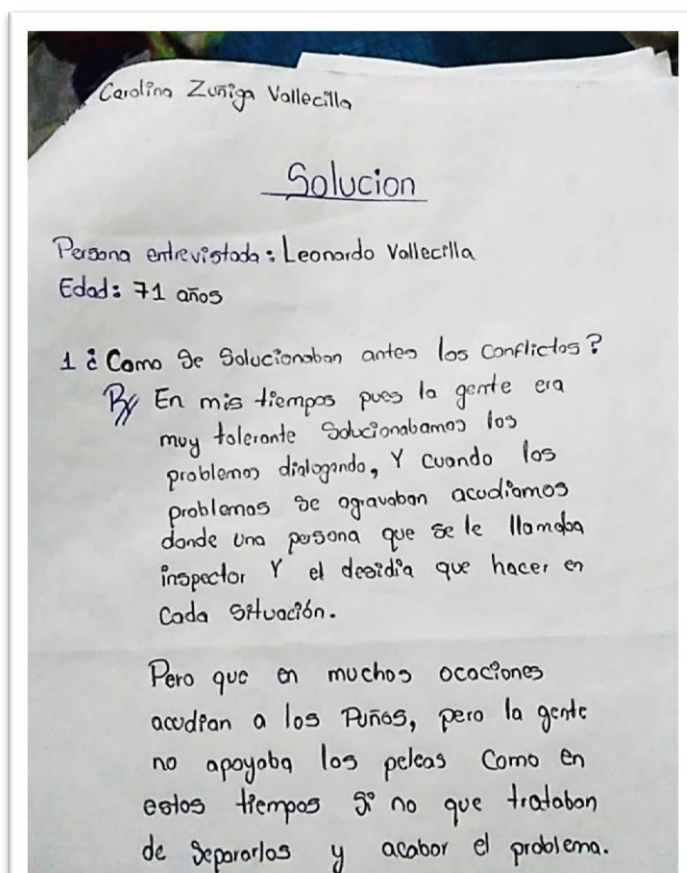 Carolina Zuñiga Vallecilla
Solucion
Persona entrevistada: Leonardo Vallecilla
Edad: 71 años
1 ¿Como Se Solucionaban antes los Conflictos?
R/ En mis tiempos pues la gente era
muy tolerante Solucionabamos los
problemas dialogando, Y cuando los
problemas se agravaban acudiamos
donde una persona que se le llamaba
inspector Y el desidia que hacer en
Cada Situación.
Pero que en muchos ocaciones
acudian a los Puños, pero la gente
no apoyaba las peleas Como en
estos tiempos Si no que trataban
de Separarlos y acabar el problema.